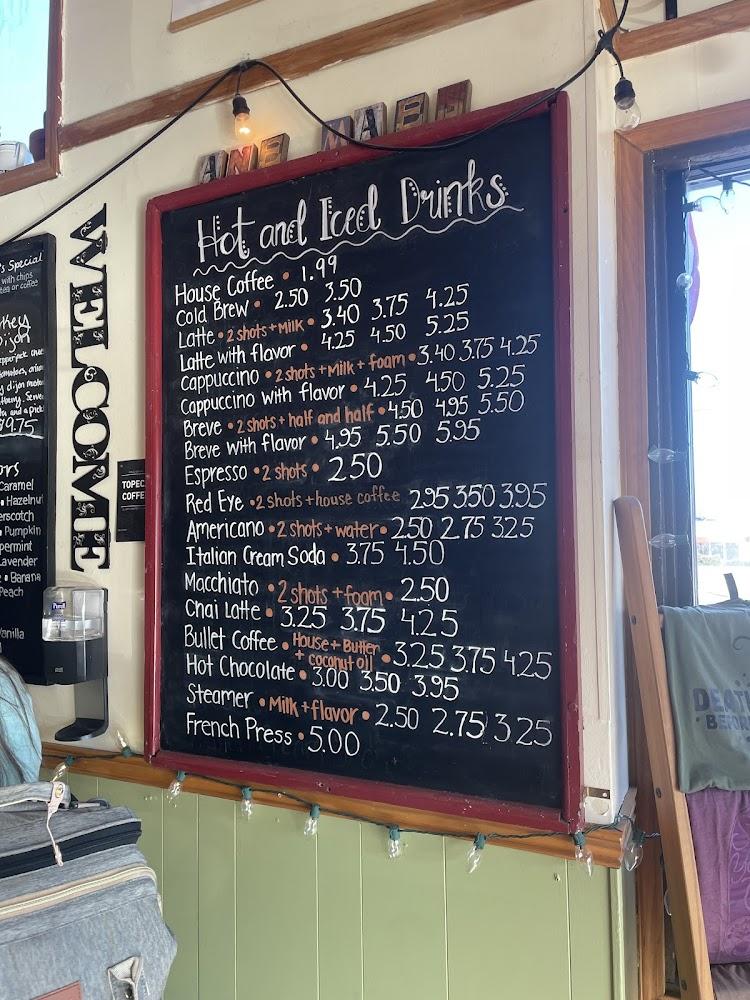 Hot and Iced Drinks
House Coffee • 1.99
Cold Brew • 2.50 3.50
Latte • 2 shots + milk • 3.40 3.75 4.25
Latte with flavor • 4.25 4.50 5.25
Cappuccino • 2 shots + milk + foam • 3.40 3.75 4.25
Cappuccino with flavor • 4.25 4.50 5.25
Breve • 2 shots + half and half • 4.50 4.95 5.50
Breve with flavor • 4.95 5.50 5.95
Espresso • 2 shots • 2.50
Red Eye • 2 shots + house coffee 2.95 3.50 3.95
Americano • 2 shots + water • 2.50 2.75 3.25
Italian Cream Soda • 3.75 4.50
Macchiato • 2 shots + foam • 2.50
Chai Latte • 3.25 3.75 4.25
Bullet Coffee • House + Butter
+ coconut oil • 3.25 3.75 4.25
Hot Chocolate • 3.00 3.50 3.95
Steamer • Milk + flavor • 2.50 2.75 3.25
French Press • 5.00
WELCOME
's Special
with chips
tea or coffee
rkey
Dijon
9.75
ors
Caramel
• Hazelnut
erscotch
• Pumpkin
permint
avender
• Banana
Peach
Vanilla
TOPEC
COFFE
Purell
DEAT
BEFO